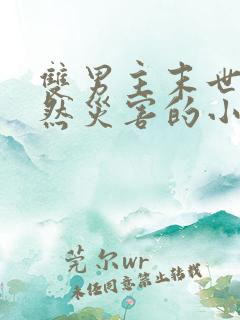 雙男主末世
然災害的小
莞尔wr
未经同意禁止转载